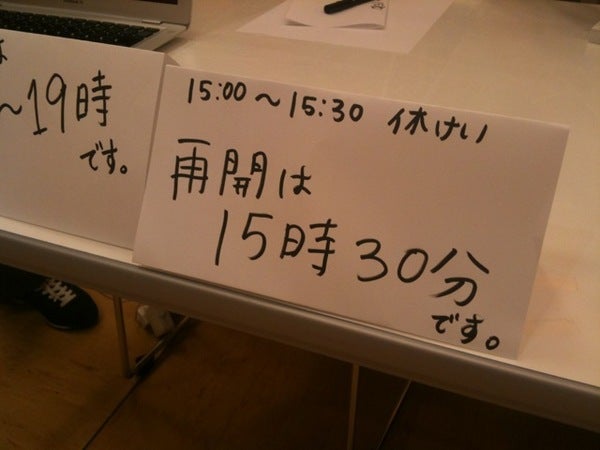 〜19時
です。
15:00〜15:30 休けい
再開は
15時30分
です。